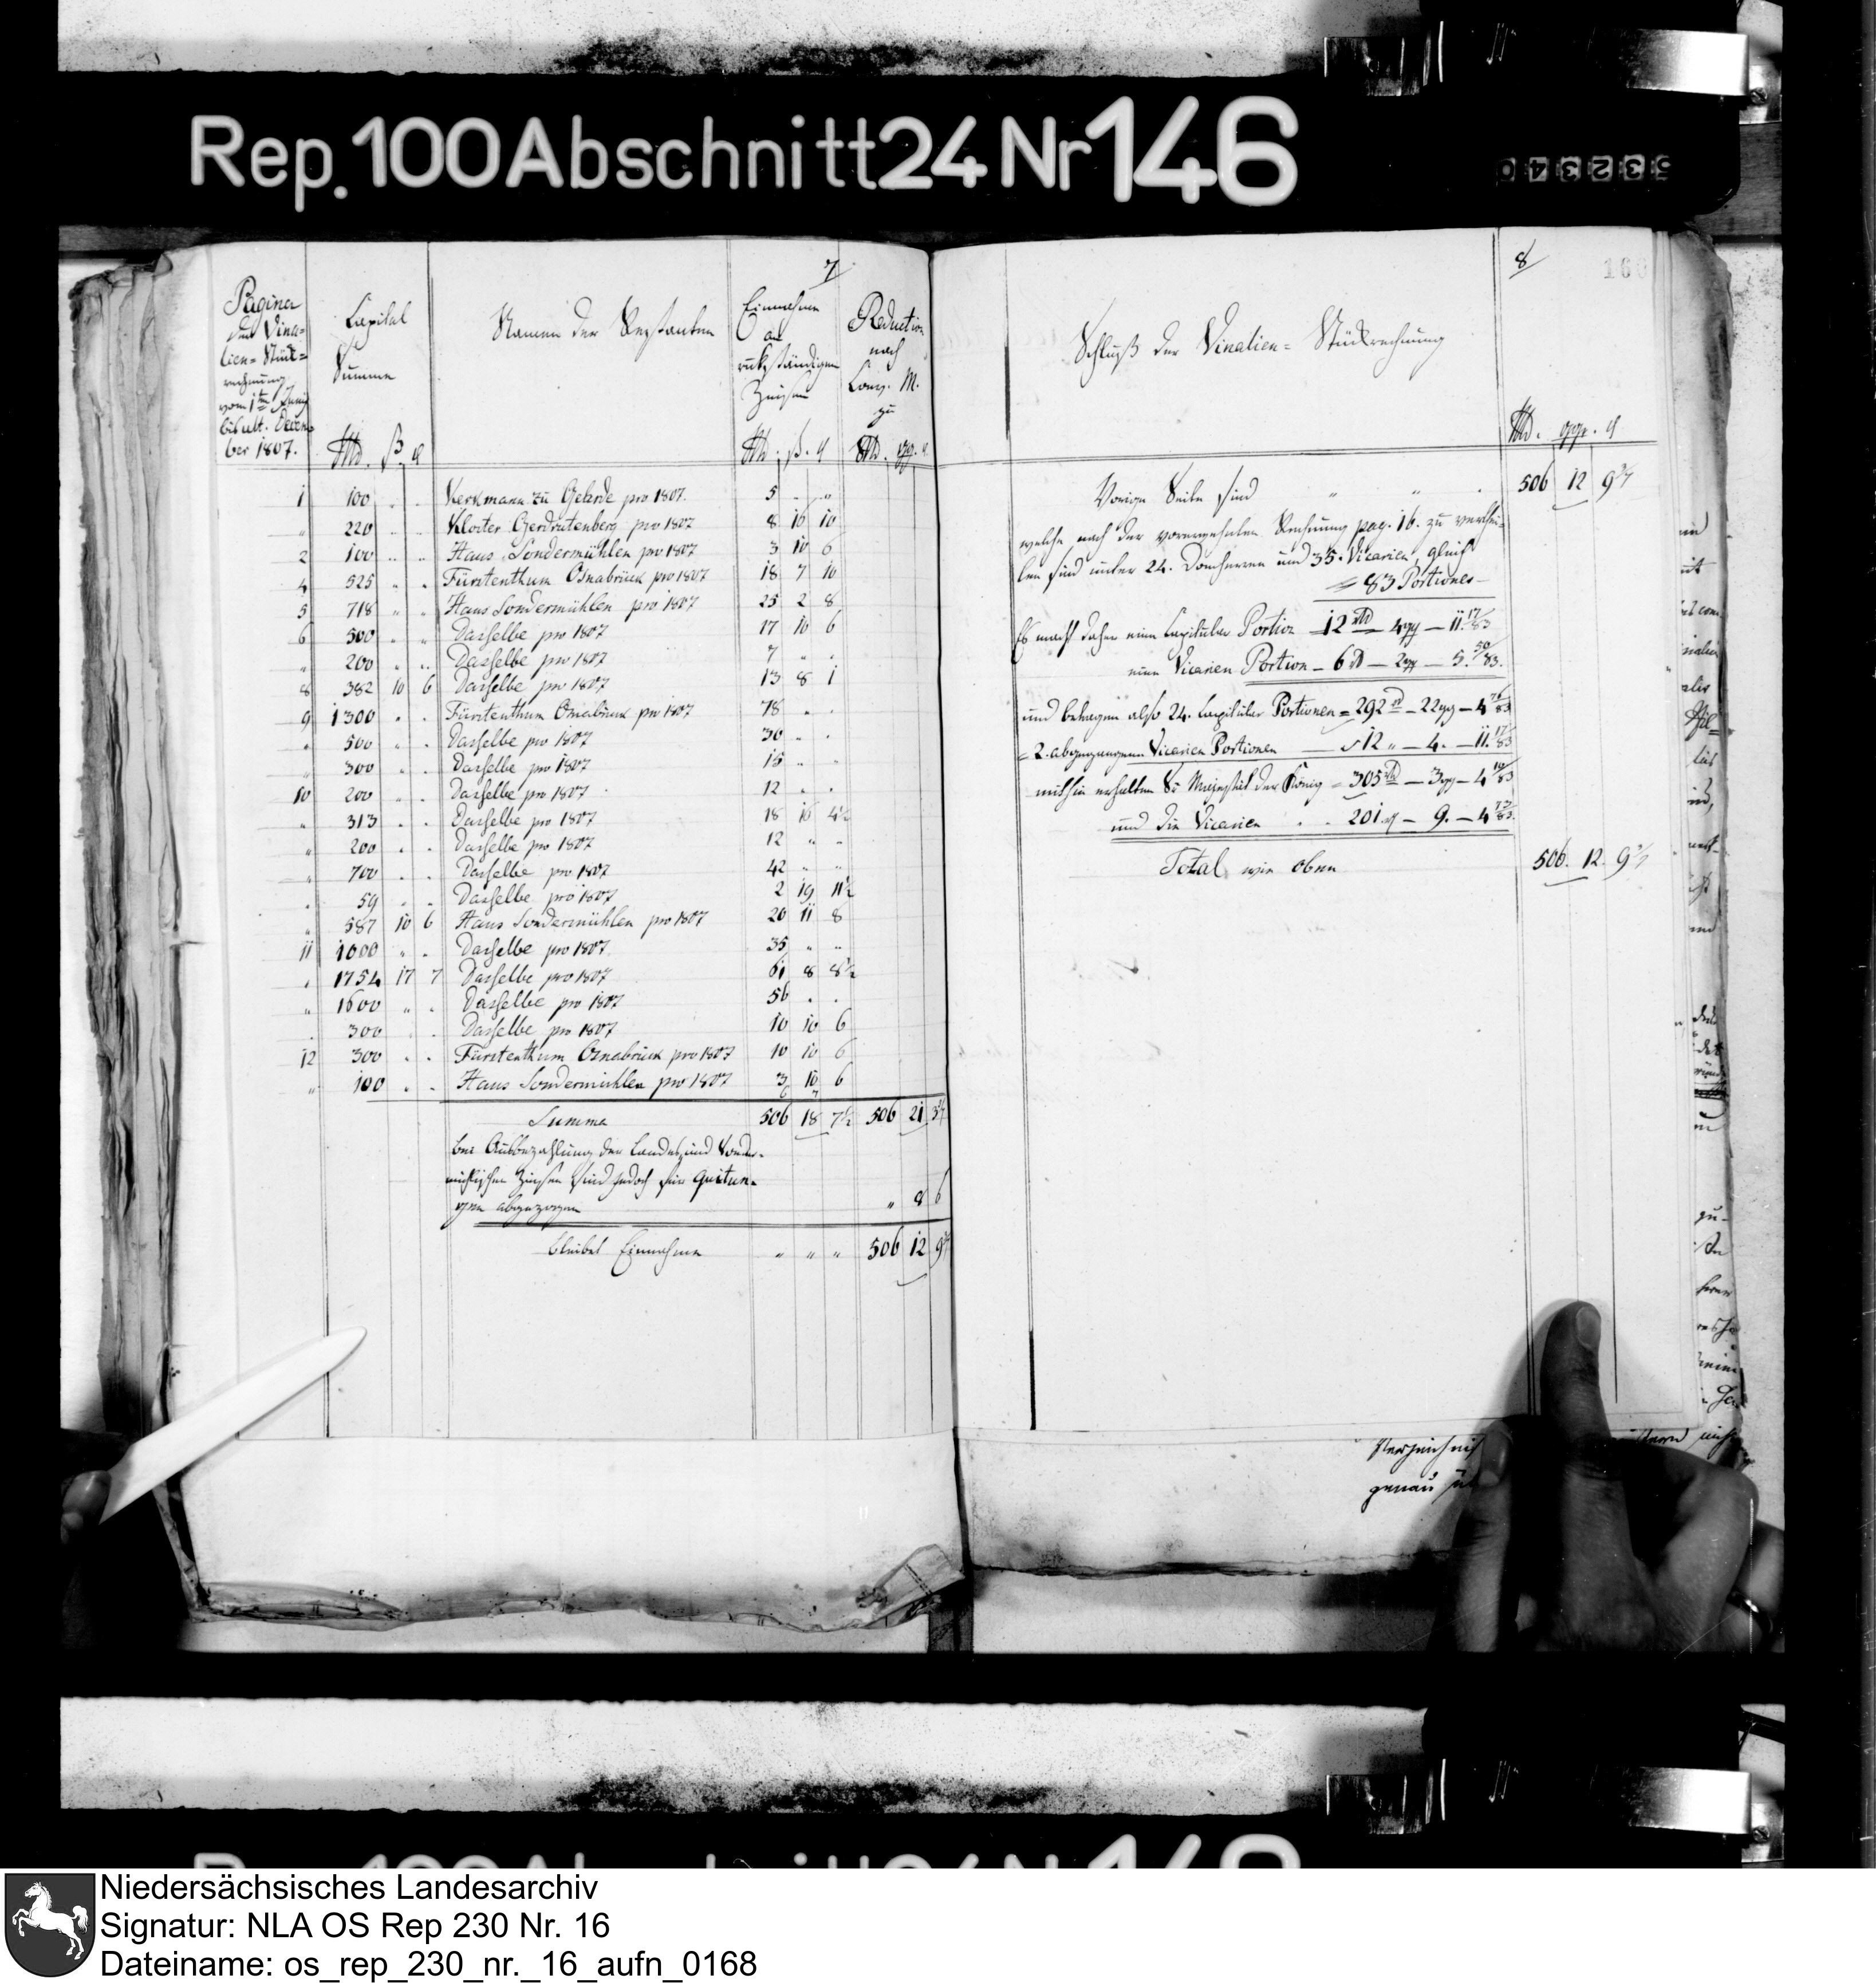 Rep. 100 Abschnitt 24 Nr 146
532340
7
Pagina
der Vina-
lien-Stück-
rechnung
vom 1ten Juny
bis ult. Decem-
ber 1807.
Capital
Summe
Rthl. ß ₰
Namen der Restanten
Einnahme
an
rückständigen
Zinsen
Rthl. ß. ₰
Reduction
nach
Conv. M.
zu
Rthl. ggr. ₰
1 100 . . Kerkmann zu Gehrde pro 1807. 5 . „
„ 220 . . Kloster Gerdrutenberg pro 1807 8 16 10
2 100 „ „ Haus Sondermühlen pro 1807 3 10 6
4 525 „ . Fürstenthum Osnabrück pro 1807 18 7 10
5 718 „ „ Haus Sondermühlen pro 1807 25 2 8
6 500 „ „ Dasselbe pro 1807 17 10 6
„ 200 „ „ Dasselbe pro 1807 7 „ .
8 382 10 6 Dasselbe pro 1807 13 8 1
9 1300 . . Fürstenthum Osnabrück pro 1807 78 . .
„ 500 . . Dasselbe pro 1807 30 . .
„ 300 . . Dasselbe pro 1807 15 . .
10 200 . . Dasselbe pro 1807 12 . .
„ 313 . . Dasselbe pro 1807 18 16 4½
„ 200 . . Dasselbe pro 1807 12 „ „
„ 700 . . Dasselbe pro 1807 42 „ „
„ 59 . . Dasselbe pro 1807 2 19 11½
„ 587 10 6 Haus Sondermühlen pro 1807 20 11 8
11 1000 „ . Dasselbe pro 1807. 35 „ „
„ 1754 17 7 Dasselbe pro 1807 61 8 8½
„ 1600 „ . Dasselbe pro 1807 56 . .
. 300 . . Dasselbe pro 1807 10 10 6
12 300 . . Fürstenthum Osnabrück pro 1807 10 10 6
„ 100 . . Haus Sondermühlen pro 1807 3 10 6
Summa 506 18 7½ 506 21 3 3/7
bei Ausbezahlung der Landes und Sonder-
mühlschen Zinsen sind jedoch für Quitun-
gen abgezogen „ 8 6
bleibet Einnahme „ „ „ 506 12 9 3/7
8
160
Schluß der Vinalien-Stückrechnung
Rthl. ggr. ₰
Vorige Seite sind „ „ . 506 12 9 3/7
welche nach der vorerwehnten Rechnung pag. 16. zu verthei-
len sind unter 24. Domherren und 35. Vicarien, gleich
= 83 Portiones
Es macht daher eine Capitular Portion 12 rthl — 4 gg — 11. 17/83
eine Vicarien Portion — 6 rthl — 2 gg — 5. 50/83.
und betragen also 24. Capitular Portionen = 292 rthl — 22 gg — 4 76/83
= 2. abgegangenen Vicarien Portionen — 12 „ — 4. — 11. 17/83
mithin erhalten Se Majestät der König = 305 rthl — 3 gg — 4 10/83
und die Vicarien . . 201 — 9. — 4 73/83.
Total wie oben 506. 12. 9 3/7
Verzeichnis
genau
Niedersächsisches Landesarchiv
Signatur: NLA OS Rep 230 Nr. 16
Dateiname: os_rep_230_nr._16_aufn_0168